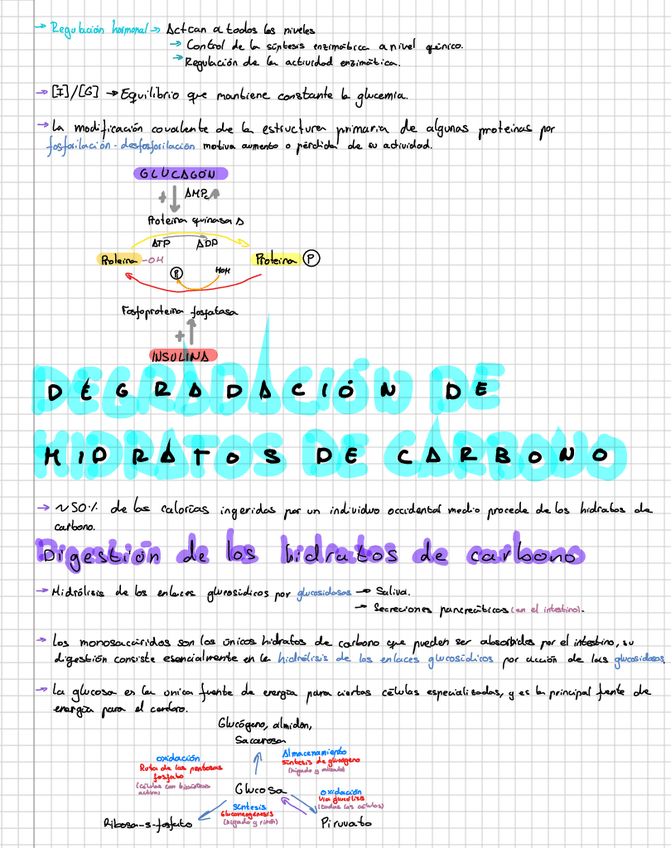 → Regulación hormonal → Actúan a todos los niveles
→ Control de la síntesis enzimática a nivel génico.
→ Regulación de la actividad enzimática.
→ [I]/[G] → Equilibrio que mantiene constante la glucemia.
→ La modificación covalente de la estructura primaria de algunas proteinas por
fosforilación-desfosforilación motiva aumento o pérdida de su actividad.
GLUCAGÓN
+ AMPc
Proteina quinasa A
ATP ADP
Proteina -OH Proteina P
P HOH
Fosfoproteina fosfatasa
+
INSULINA
DEGRADACIÓN DE
HIDRATOS DE CARBONO
→ ~50% de las calorías ingeridas por un individuo occidental medio procede de los hidratos de
carbono.
Digestión de los hidratos de carbono
→ Hidrólisis de los enlaces glucosídicos por glucosidasas → Saliva.
→ Secreciones pancreáticas (en el intestino).
→ Los monosacáridos son los únicos hidratos de carbono que pueden ser absorbidos por el intestino, su
digestión consiste esencialmente en la hidrólisis de los enlaces glucosídicos por acción de las glucosidasas
→ La glucosa en la unica fuente de energía para ciertas células especializadas, y es la principal fuente de
energía para el cerebro.
Glucógeno, almidón,
Sacarosa
oxidación
Ruta de las pentosas
fosfato
(células con biosíntesis
activa)
Almacenamiento
Síntesis de glucógeno
(hígado y músculo)
Glucosa
Síntesis
Gluconeogénesis
(hígado y riñón)
oxidación
Vía glucólisis
(todas las células)
Ribosa-5-fosfato
Piruvato